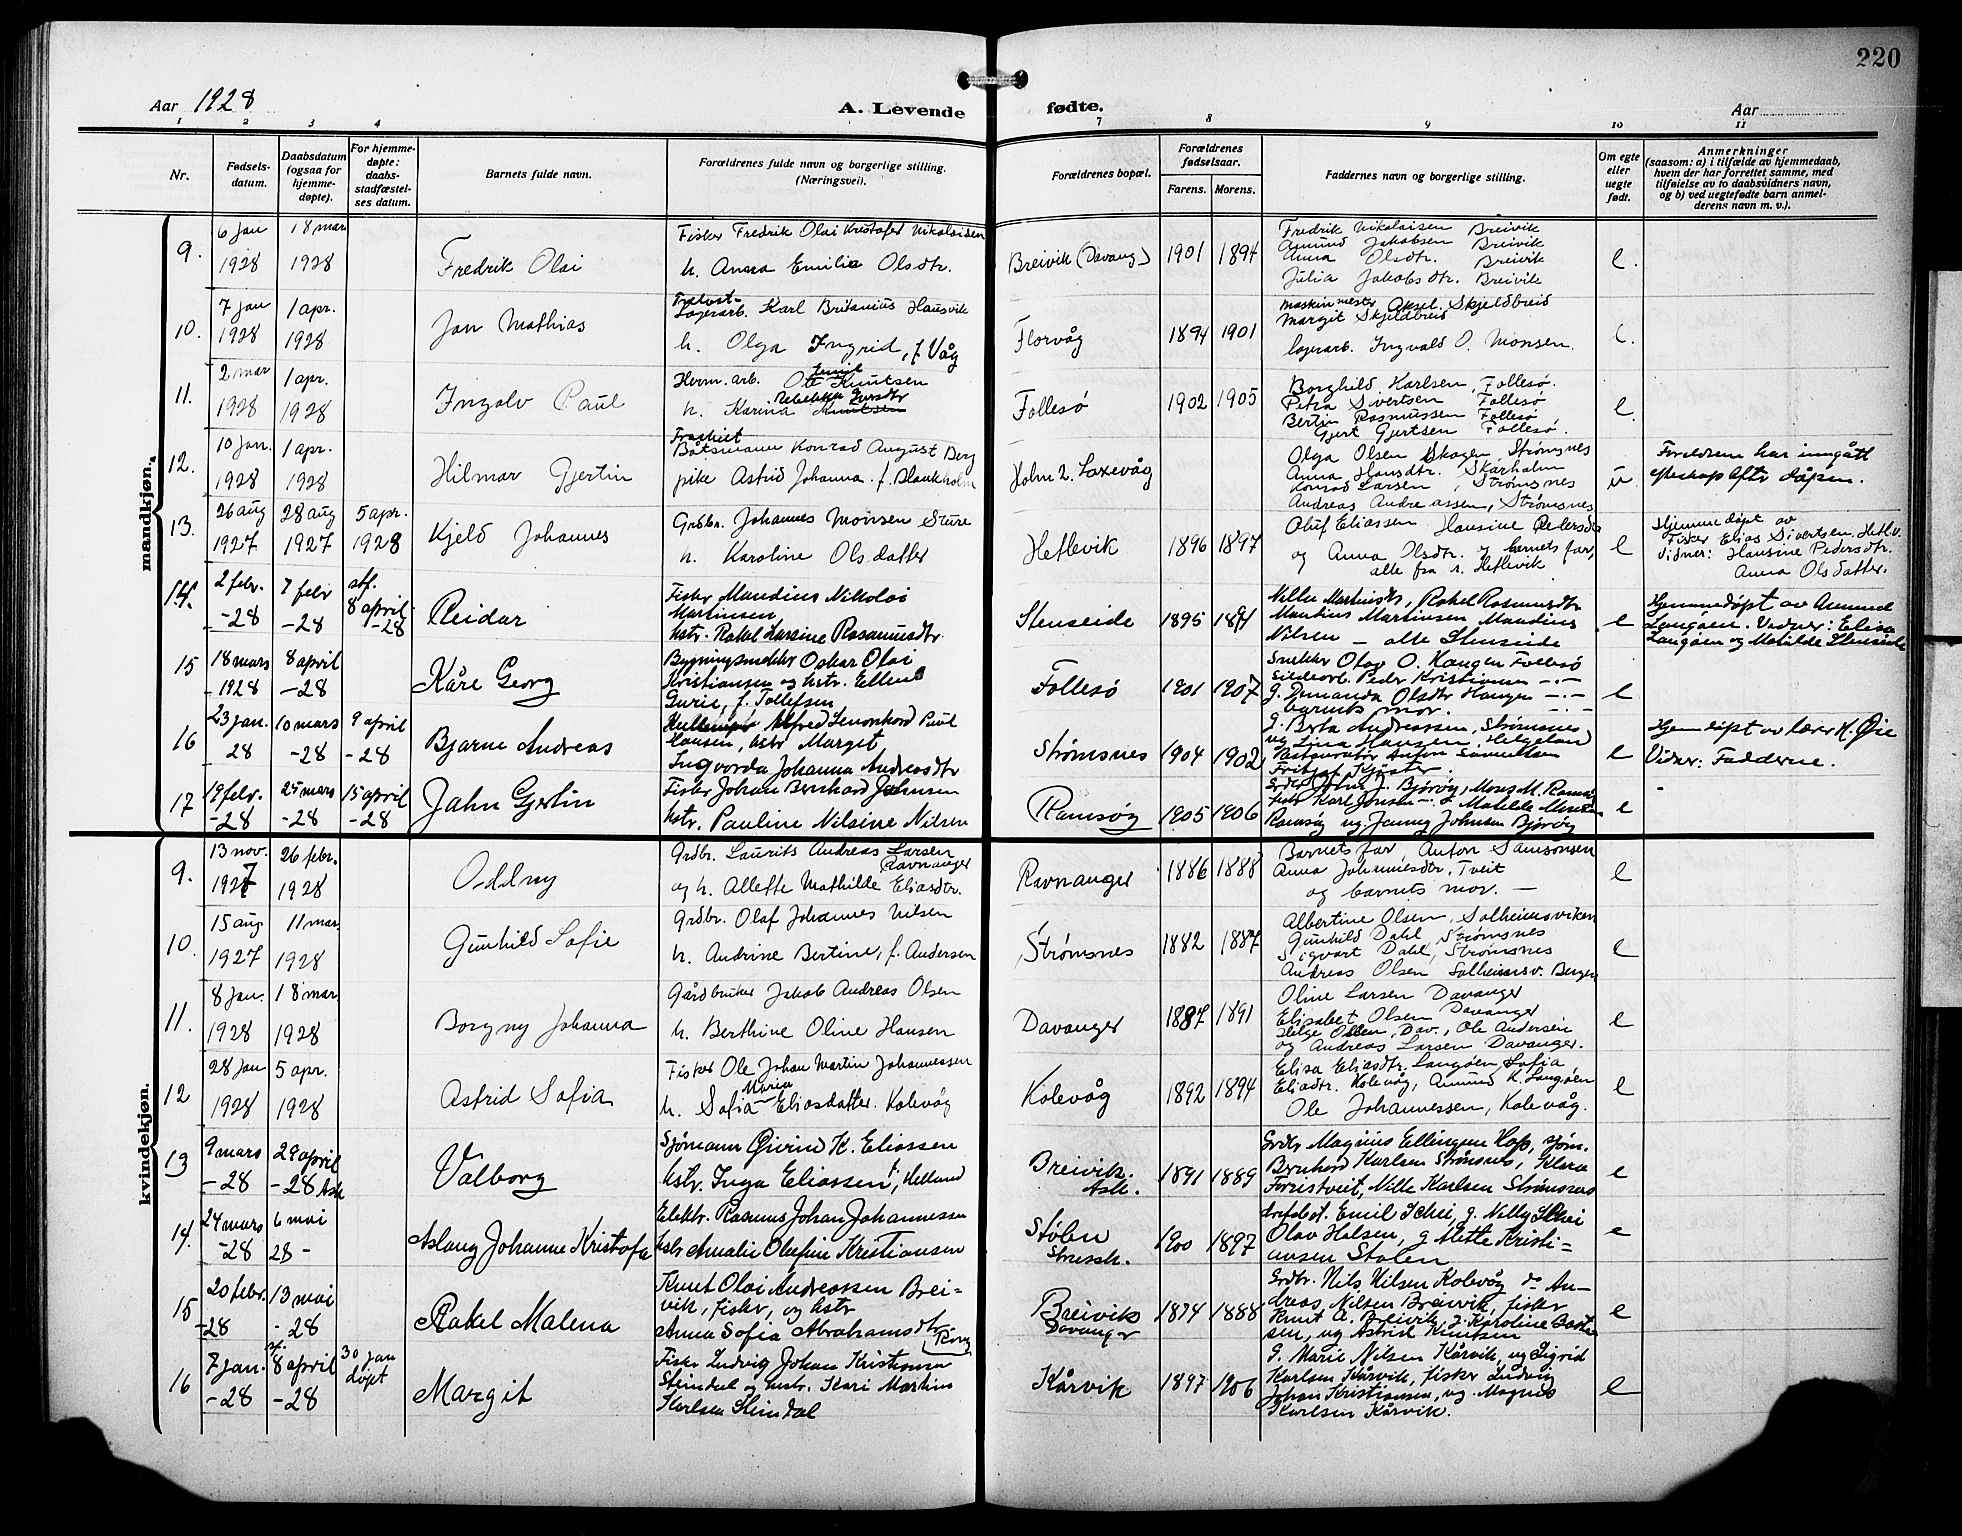 220
Aar 1928
A. Levende fødte.
Aar
1 2 3 4 7 8 9 10 11
Nr.
Fødsels-
datum.
Daabsdatum
(ogsaa for
hjemme-
døpte).
For hjemme-
døpte:
daabs-
stadfæstel-
ses datum.
Barnets fulde navn.
Forældrenes fulde navn og borgerlige stilling.
(Næringsvei).
Forældrenes bopæl.
Forældrenes
fødselsaar.
Farens. Morens.
Faddernes navn og borgerlige stilling.
Om egte
eller
uegte
født.
Anmerkninger
(saasom: a) i tilfælde av hjemmedaab,
hvem der har forrettet samme, med
tilføielse av to daabsvidners navn,
og b) ved uegtefødte barn anmel-
derens navn m. v.).
mandkjøn.
9.
6 jan
1928
18 mar
1928
Fredrik Olai
Fisker Fredrik Olai Kristofer Nikolaisen
h. Anna Emilie Olsdtr.
Breivik (Davang.)
1901 1894
Fredrik Nikolaisen Breivik
Amund Jakobsen Breivik
Anna Olsdtr. Breivik
Julia Jakobsdtr. Breivik
e.
10.
7 jan
1928
1 apr.
1928
Jan Mathias
Lagerarb. Karl Britanius Hausvik
h. Olga Ingrid, f. Våg
Florvåg
1894 1901
maskinmester Aksel Skjeldbreid
Margit Skjeldbreid
lagerarb. Ingvald O. Monsen.
e.
11.
2 mar
1928
1 apr.
1928
Ingolv Paul
Herm. arb. Emil Knutsen
h. Karina Rebekka Iversdtr
Follesø
1902 1905
Borghild Karlsen, Follesø.
Petra Sivertsen Follesø
Bertin Rasmussen Follesø,
Gjert Gjertsen Follesø.
e
12.
10 jan.
1928
1 apr.
1928
Hilmar Gjertin
Båtsmann Konrad August Berg
pike Astrid Johanna f. Blankholm
Holm 2. Laxevåg
Olga Olsen Skagen, Strømsnes
Anna Hansdtr. Skarholm
Konrad Larsen, Strømsnes
Andreas Andreassen, Strømsnes
u
Foreldrene har inngått
ekteskap efter dåpen.
13.
26 aug
1927
28 aug
1927
5 apr.
1928
Kjeld Johannes
Grdbr. Johannes Monsen Sture
h. Karoline Olsdatter
Hetlevik
1896 1897
Oluf Eliassen Hansine Pedersdtr
og Anna Olsdtr. og barnets far,
alle fra n. Hetlevik
e
Hjemmedøpt av
Fisker Elias Sivertsen, Hetlev.
Vidner: Hansine Pedersdtr.
Anna Olsdatter.
14.
2 febr.
-28
7 febr
-28
stf.
8 april
-28
Reidar
Fisker Maudius Nikolai
Martinsen
hstr. Rakel Larsine Rasmusdtr
Stenseide
1895 1891
Nilla Martinsdtr, Rakel Rasmusdtr
Maudius Martinsen Maudius
Nilsen — alle Stenseide
e
Hjemmedøpt av Amund
Langøen. Vidner: Elisa
Langøen og Matilde Stenseide
15
18 mars
-1928
8 april
-28
Kåre Georg
Bygningssnekker Oskar Olai
Kristiansen og hstr. Elline
Gurie, f. Tollefsen
Follesø
1901 1907
Snekker Olav O. Haugen Follesø
sildearb. Peder Kristiansen -"-
g. Amanda Olsdtr Haugen -"-
barnets mor. -"-
e
16
23 jan.
28
10 mars
-28
9 april
-28
Bjarne Andreas
Alfred Lenonhard Paul
Hansen, hstr Marget
Ingvarda Johanna Andreasdtr
Strømsnes
1904 1902
g. Berta Andreassen, Strømsnes
ug Lina Hansen, Helgeland
Restauratør Anton Samuelsen
Fritjof Kjøster
e
Hjemdøpt av lærer K. Øie
Vidner: Fadderne.
17
19 febr.
-28
25 mars
-28
15 april
-28
Jahn Gjertin
Fisker Johan Bernhard Johnsen
hstr. Pauline Nilsine Nilsen
Ramsøy
1905 1906
Bjørøy, Mons M. Ramsøy
Ramsøy ug. Jenny Johnsen Bjørøy
e
kvindekjøn.
9.
13 nov.
1927
26 febr.
1928
Oddny
Grdbr. Laurits Andreas Larsen
Ravnanger
og h. Allette Mathilde Eliasdtr.
Ravnanger
1886 1888
Barnets far Anton Samsonsen
Anna Johannesdtr. Tveit
og barnets mor. —
e
10
15 aug
1927
11 mar
1928
Gunhild Sofie
Grdbr. Olaf Johannes Nilsen
h. Andrine Bertine, f. Andersen
Strømsnes
1882 1887
Albertine Olsen, Solheimsviken
Gunhild Dahl, Strømsnes
Sigvart Dahl, Strømsnes
Andreas Olsen Solheimsv. Bergen
e
11.
8 jan.
1928
18 mar
1928
Borgny Johanna
Gårdbruker Jakob Andreas Olsen
h. Berthine Oline Hansen
Davanger
1887 1891
Oline Larsen Davanger
Elisabet Olsen Davanger
Helge Olsen, Dav., Ole Andersen
og Andreas Larsen Davanger.
e
12
28 jan
1928
5 apr.
1928
Astrid Sofia
Fisker Ole Johan Martin Johannessen
h. Sofia Maria Eliasdatter. Kolevåg
Kolevåg
1892 1894
Elisa Eliasdtr. Langøen, Sofia
Eliadtr. Kolevåg, Amund K. Langøen
Ole Johannessen, Kolevåg.
e
13
9 mars
-28
29 april
-28 Ask
Valborg
Sjømann Øivind K. Eliassen
hstr. Inga Eliassen, f. Helland
Breivik.
Ask.
1891 1889
Grdbr Magnus Ellingsen Hop, sjøm.
Bernhard Karlsen Strømsnes, Klara
Forristveit, Nille Karlsen Strømsnes
e
14.
24 mars
-28
6 mai
28 -
Aslaug Johanne Kristofa
Elektr. Rasmus Johan Johannessen
hstr Amalie Olufine Kristiansen
Stølen
1900 1897
Emil Schei, g. Nelly Schei
Olav Halsen, g Mette Kristi=
ansen Stølen
e
15
20 febr.
-28
13 mai
-28
Rakel Malena
Knut Olai Andreassen Brei=
vik, fisker, og hstr
Anna Sofia Abrahamsdtr
(Rong)
Breivik
Davanger
1894 1888
Grdbr. Nils Nilsen Kolevåg do An-
dreas Nilsen Breivik, fisker
Knut A. Breivik, g. Karoline
sen, ug Astrid Knutsen
e
16
7 jan.
-28
8 april
-28
30 jan
døpt
Margit
Fisker Ludvig Johan Kristiansen
Steindal og hustr. Kari Martine
Karlsen Steindal
Kårvik
1897 1906
G. Marie Nilsen Kårvik, ug Sigrid
Karlsen Kårvik, fisker Ludvig
Johan Kristiansen, ug. Magnus
Karlsen Kårvik.
e